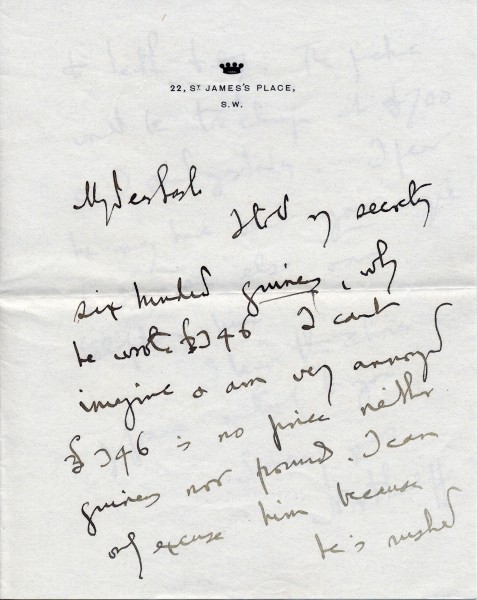 22, ST JAMES'S PLACE,
S.W.
My dear
I told my secretary
six hundred guineas, why
he wrote £346 I cant
imagine & am very annoyed
£346 is no price neither
guineas nor pounds. I can
only excuse him because
he is rushed